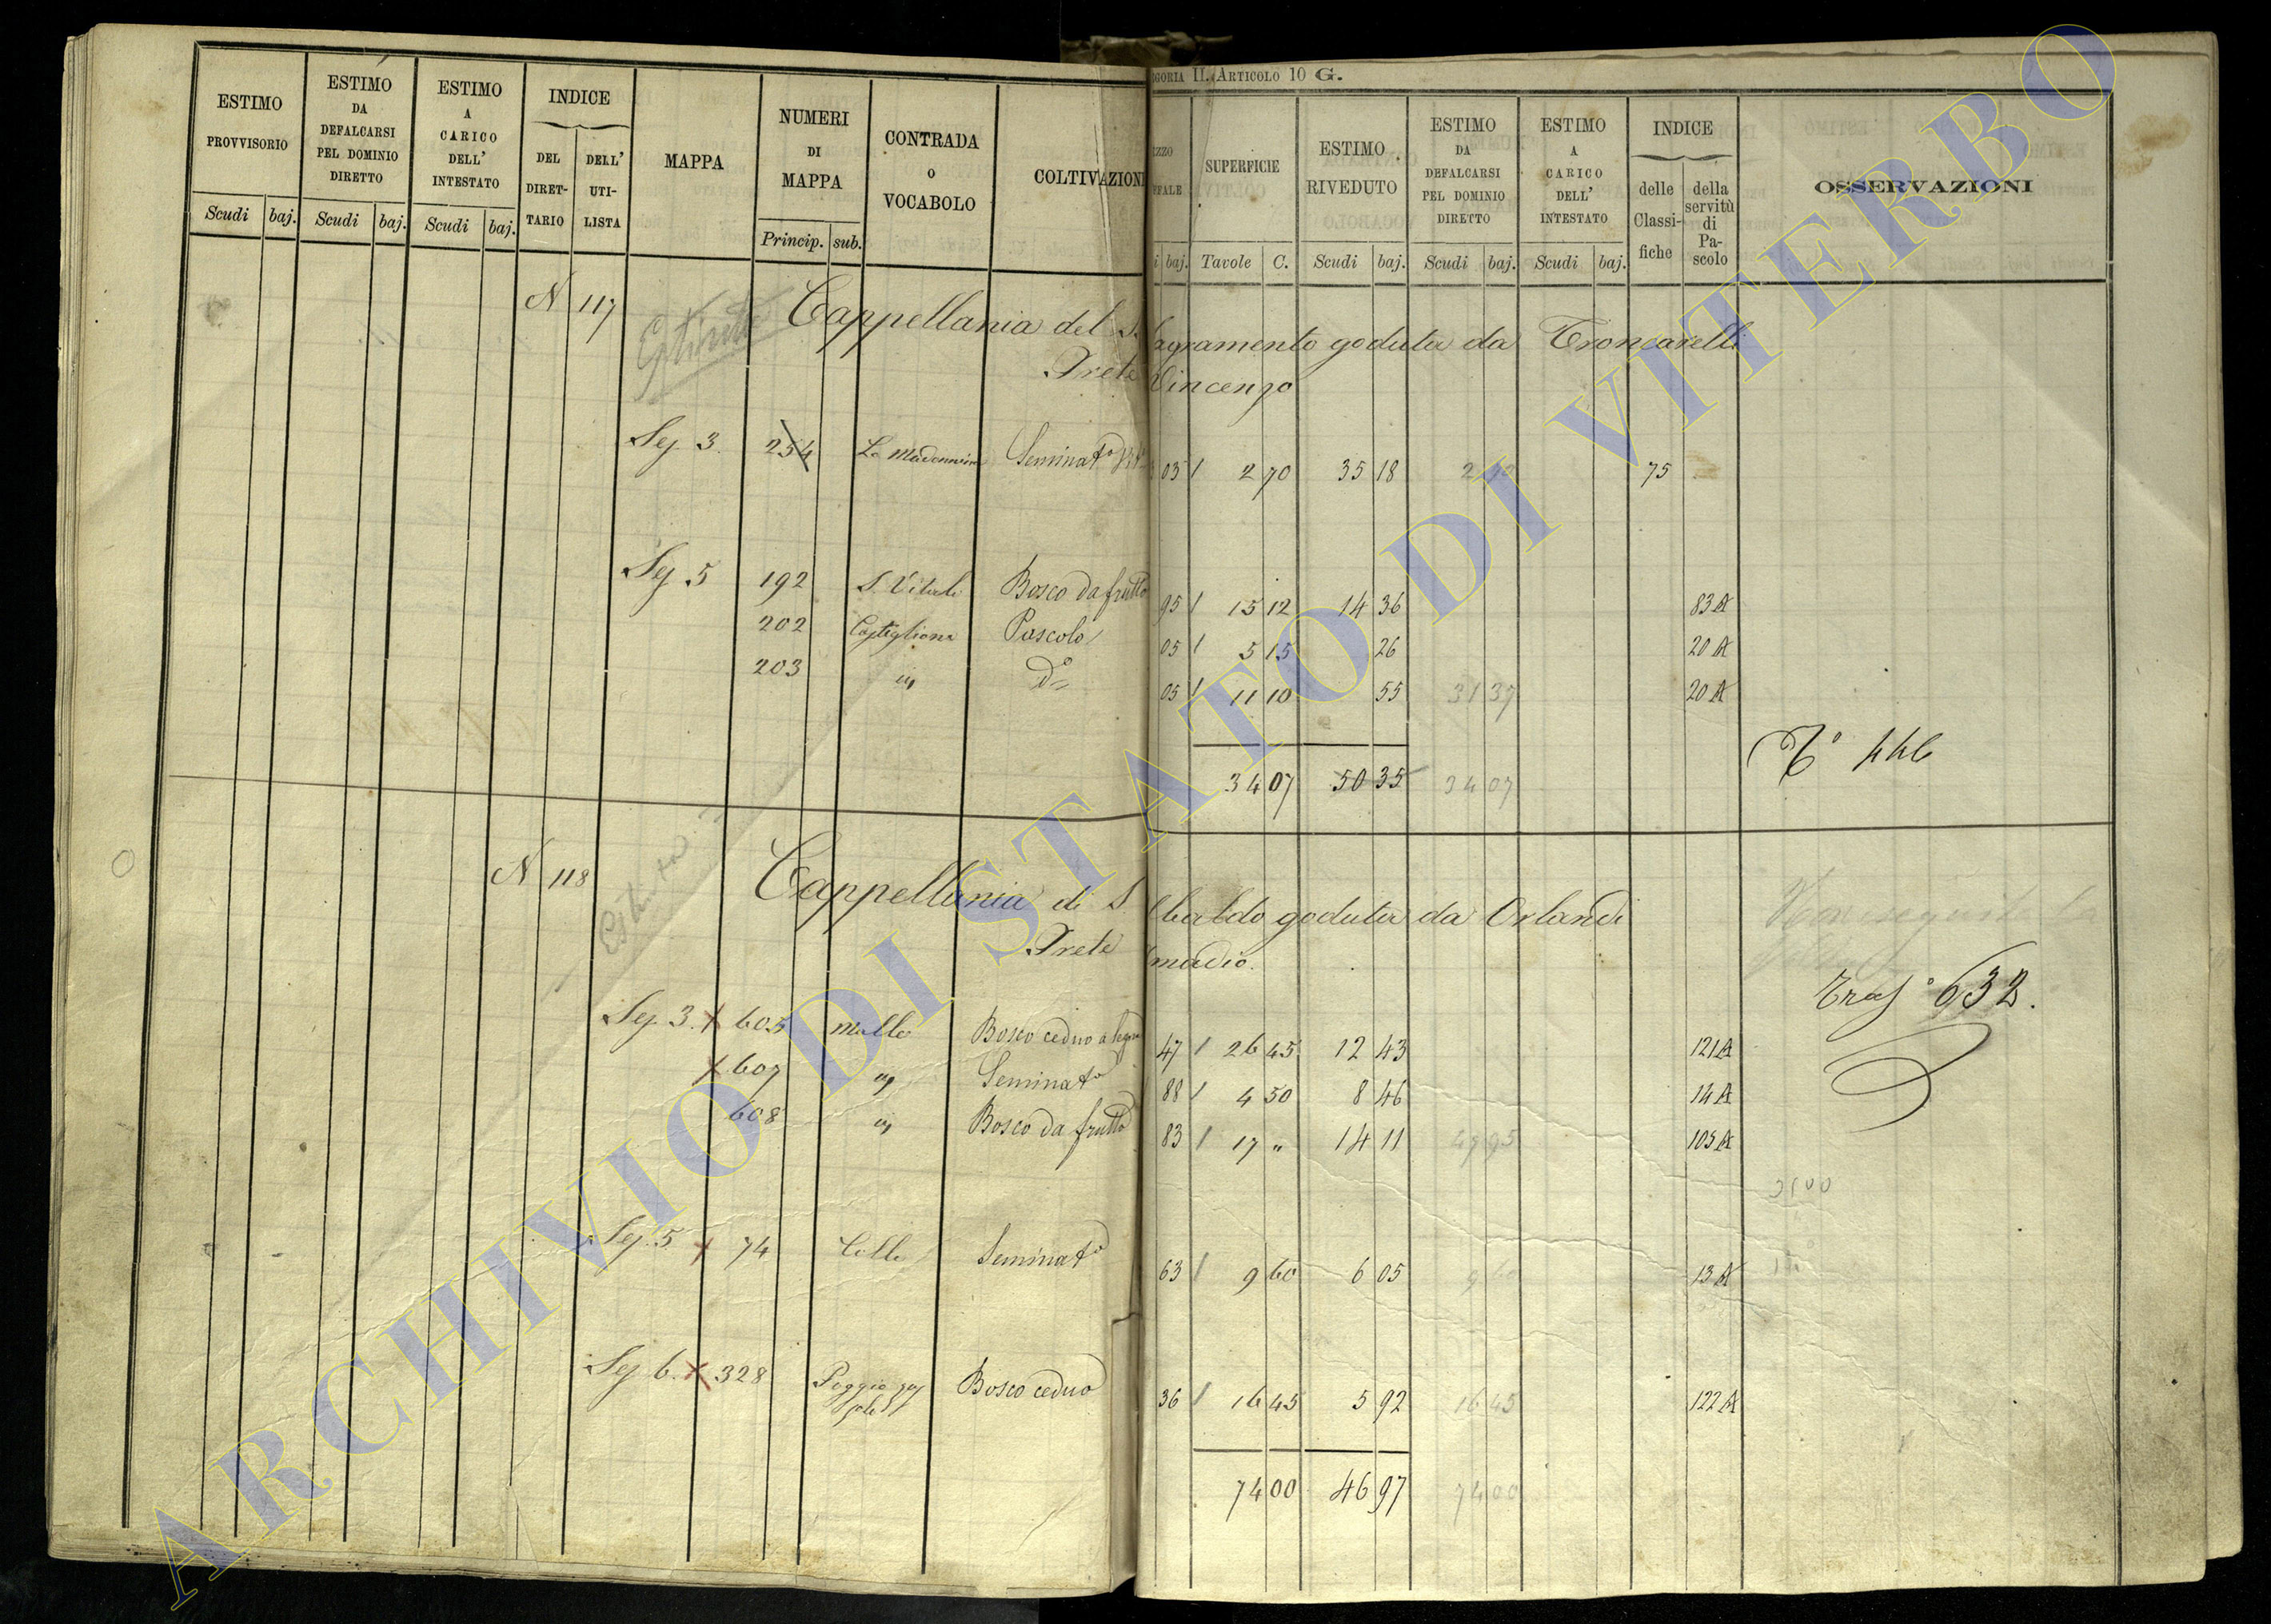 ESTIMO PROVVISORIO
ESTIMO DA DEFALCARSI PEL DOMINIO DIRETTO
ESTIMO A CARICO DELL' INTESTATO
INDICE
DEL DIRETTARIO
DELL' UTILISTA
MAPPA
NUMERI DI MAPPA
CONTRADA o VOCABOLO
COLTIVAZIONI
Scudi baj. Scudi baj. Scudi baj. Princip. sub.
GORIA II. ARTICOLO 10 G.
SUPERFICIE
ESTIMO RIVEDUTO
ESTIMO DA DEFALCARSI PEL DOMINIO DIRETTO
ESTIMO A CARICO DELL' INTESTATO
INDICE
delle Classifiche
della servitù di Pascolo
OSSERVAZIONI
baj. Tavole C. Scudi baj. Scudi baj. Scudi baj.
N 117 Cappellania del S. Sagramento goduta da Troncarelli
Prete Vincenzo
Seg. 3. 254 La Madonnina Seminato 03 2 70 35 18 75
Seg. 5 192 S. Vitale Bosco da frutto 95 15 12 14 36 83 A
202 Castiglione Pascolo 05 5 15 26 20 A
203 " do 05 11 10 55 31 37 20 A
34 07 50 35 34 07
To 446
N 118 Cappellania di S. Ubaldo goduta da Orlandi
Prete Amadio.
Tras° 632.
Seg. 3. X 605 Mollo Bosco ceduo 47 26 45 12 43 121 A
X 607 " Seminato 88 4 50 8 46 14 A
608 " Bosco da frutto 83 17 " 14 11 47 95 105 A
Seg. 5 X 74 Colle Seminato 63 9 60 6 05 9 60 13 A
Seg. 6. X 328 Poggio Bosco ceduo 36 16 45 5 92 16 45 122 A
74 00 46 97 74 00
ARCHIVIO DI STATO DI VITERBO